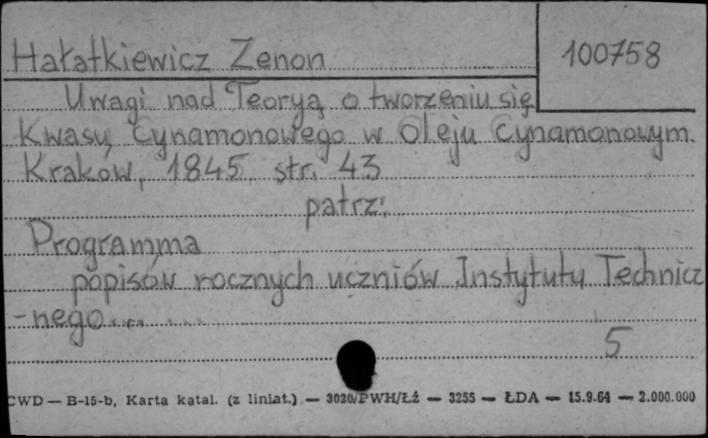 Hałatkiewicz Zenon
100758
Uwagi nad Teoryą o tworzeniu się
Kwasu Cynamonowego w Oleju Cynamonowym.
Kraków, 1845, str. 43
patrz:
Programma
popisów rocznych uczniów Instytutu Technicz
-nego...
5
CWD — B-15-b, Karta katal. (z liniat.) — 3020/PWH/Łź — 3255 — ŁDA — 15.9.64 — 2.000.000